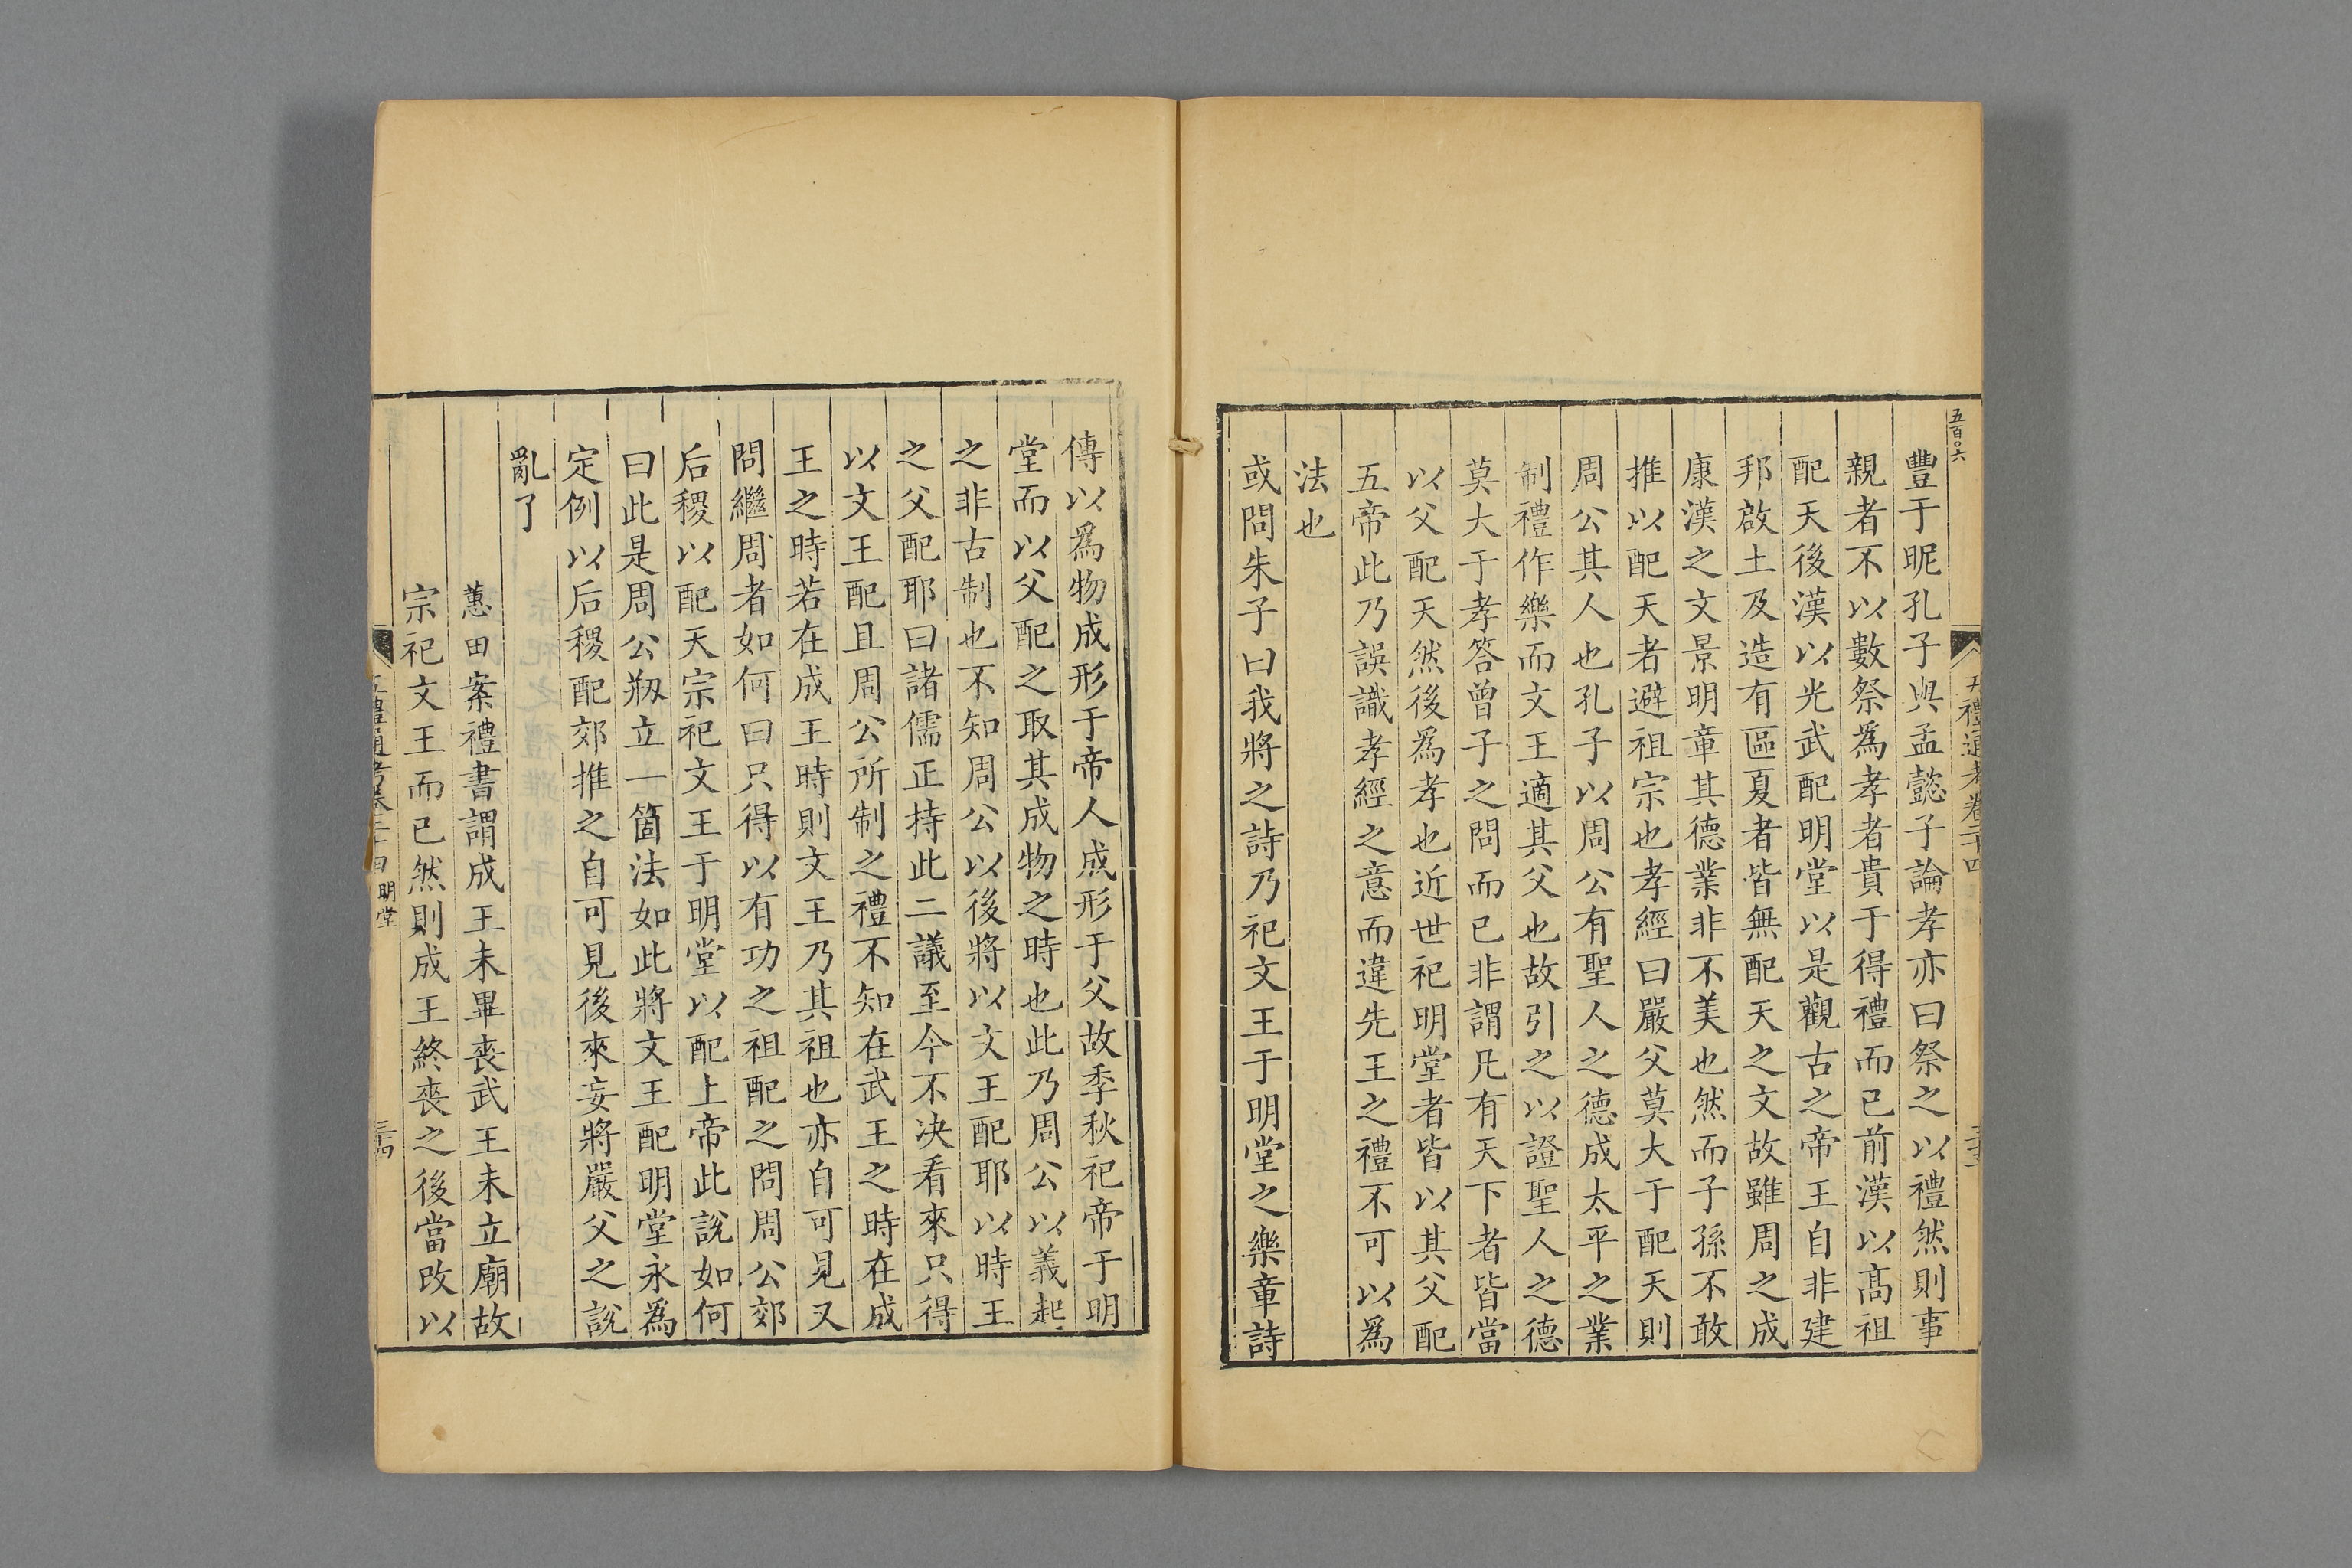 五百○六
五禮通考卷二十四
豐于昵孔子與孟懿子論孝亦曰祭之以禮然則事
親者不以數祭爲孝者貴于得禮而已前漢以高祖
配天後漢以光武配明堂以是觀古之帝王自非建
邦啟土及造有區夏者皆無配天之文故雖周之成
康漢之文景明章其德業非不美也然而子孫不敢
推以配天者避祖宗也孝經曰嚴父莫大于配天則
周公其人也孔子以周公有聖人之德成太平之業
制禮作樂而文王適其父也故引之以證聖人之德
莫大于孝答曾子之問而已非謂凡有天下者皆當
以父配天然後爲孝也近世祀明堂者皆以其父配
五帝此乃誤識孝經之意而違先王之禮不可以爲
法也
或問朱子曰我將之詩乃祀文王于明堂之樂章詩
傳以爲物成形于帝人成形于父故季秋祀帝于明
堂而以父配之取其成物之時也此乃周公以義起
之非古制也不知周公以後將以文王配耶以時王
之父配耶曰諸儒正持此二議至今不决看來只得
以文王配且周公所制之禮不知在武王之時在成
王之時若在成王時則文王乃其祖也亦自可見又
問繼周者如何曰只得以有功之祖配之問周公郊
后稷以配天宗祀文王于明堂以配上帝此說如何
曰此是周公剏立一箇法如此將文王配明堂永為
定例以后稷配郊推之自可見後來妄將嚴父之說
亂了
蕙田案禮書謂成王未畢喪武王未立廟故
宗祀文王而已然則成王終喪之後當改以
明堂